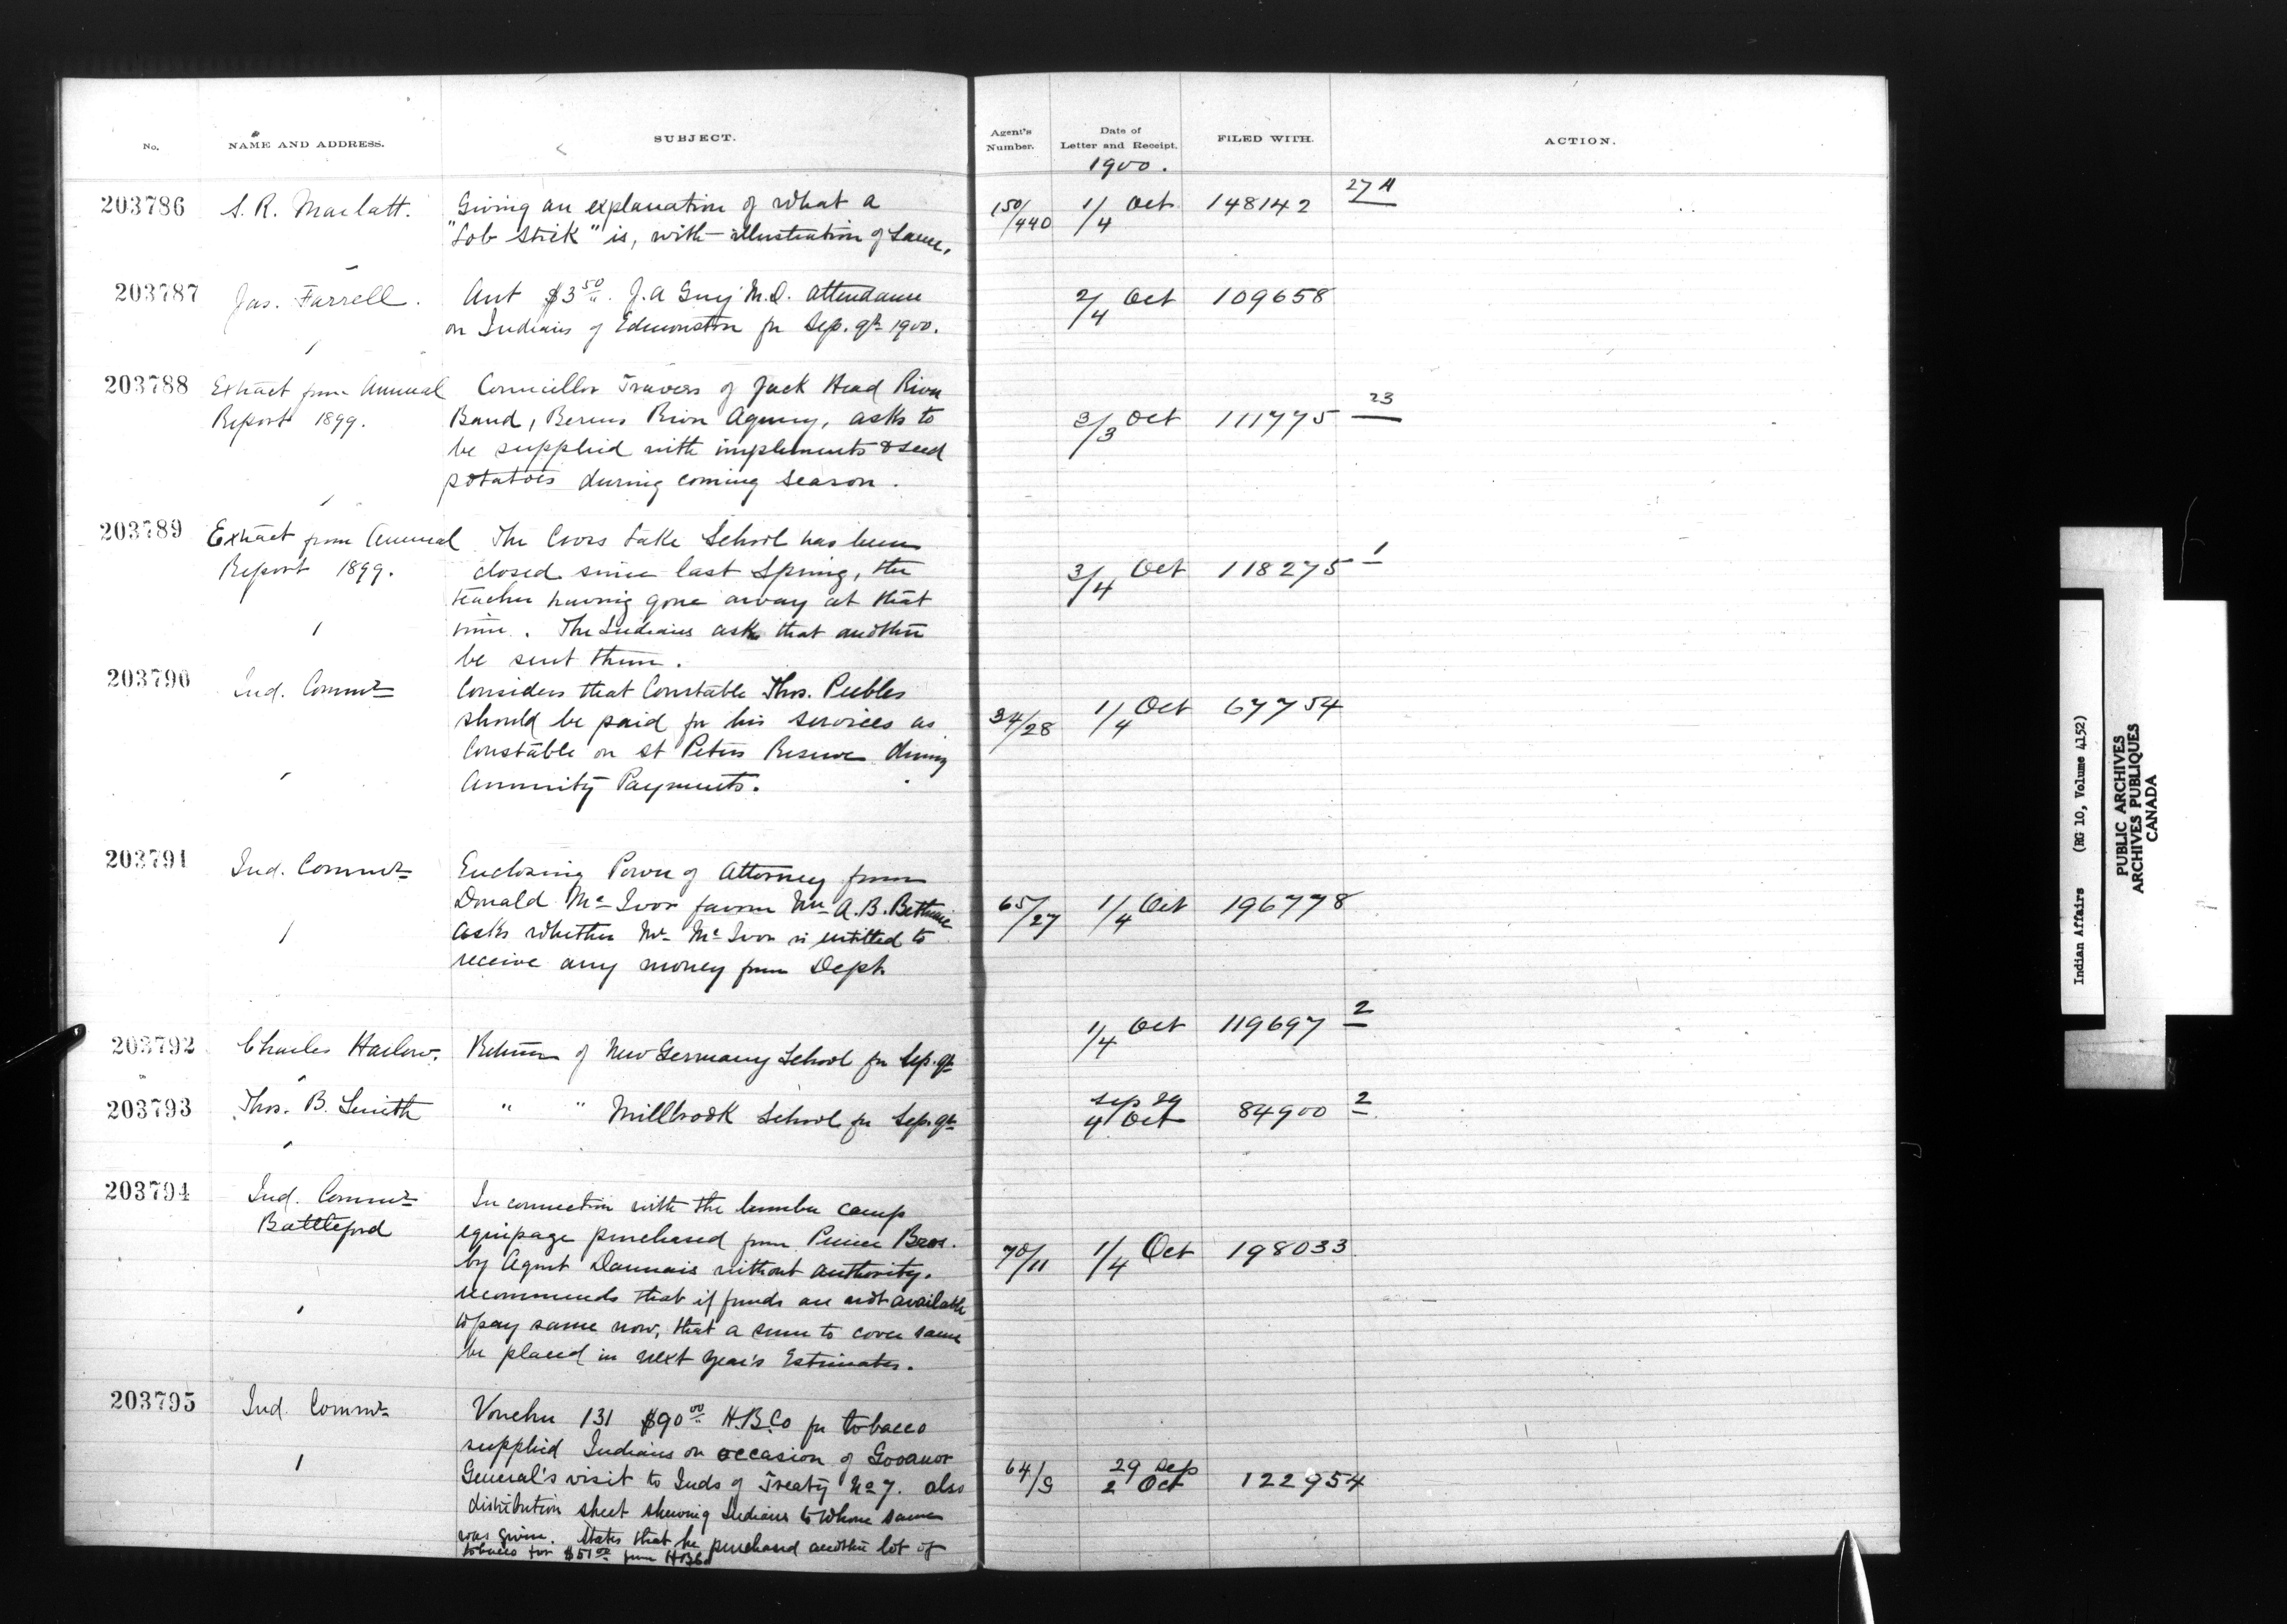 No. NAME AND ADDRESS. SUBJECT. Agent's Number. Date of Letter and Receipt. FILED WITH. ACTION.
1900.
203786 S. R. Marlatt. Giving an explanation of what a 150/440 1/4 Oct 148142 27 A
"Lob Stick" is, with illustration of same.
203787 Jas. Farrell. Acct $3 50. J. A Guy M.D. attendance 2/4 Oct 109658
on Indians of Edmonston for Sep. qr 1900.
203788 Extract from Annual Councillor Travers of Jack Head River
Report 1899. Band, Berens River Agency, asks to 3/3 Oct 111775 23
be supplied with implements & seed
potatoes during coming season.
203789 Extract from Annual The Lake School has been
Report 1899. closed since last Spring, the 3/4 Oct 118275 1
teacher having gone away at that
time. The Indians ask that another
be sent them.
203790 Ind. Commr Considers that Constable Thos. Peebles
should be paid for his services as 34/28 1/4 Oct 67754
Constable on St Peters Reserve during
Annuity Payments.
203791 Ind. Commr Enclosing Power of Attorney from
Donald McIvor favor Mr A. B. Bethune 65/27 1/4 Oct 196778
asks whether Mr McIvor is entitled to
receive any money from Dept.
203792 Charles Harlow. Return of New Germany School for Sep. qr 1/4 Oct 119697 2
203793 Thos. B. Smith " " Millbrook School for Sep. qr Sep 29 4 Oct 84900 2
203794 Ind. Commr In connection with the lumber camp
Battleford equipage purchased from Prince Bros.
by Agent Daunais without authority. 70/11 1/4 Oct 198033
recommends that if funds are not available
to pay same now, that a sum to cover same
be placed in next year's Estimates.
203795 Ind. Commr Voucher 131 $90 00 H.B.Co for tobacco
supplied Indians on occasion of Governor
General's visit to Inds of Treaty No 7. also 64/9 29 Sep 2 Oct 122954
distribution sheet shewing Indians to whom same
was given. States that he purchased another lot of
tobacco for $51 00 from HBCo
Indian Affairs (RG 10, Volume 4152)
PUBLIC ARCHIVES
ARCHIVES PUBLIQUES
CANADA